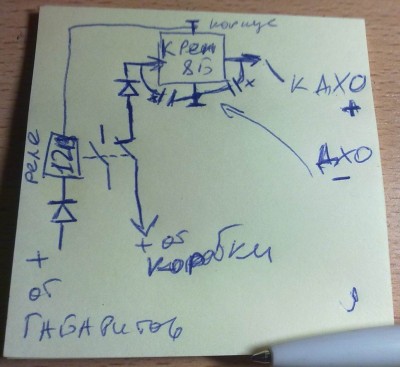 корпус
Крен
8Б
К ДХО
+
ДХО
-
реле
12В
+ от
коробки
+
от
ГАБАРИТОВ